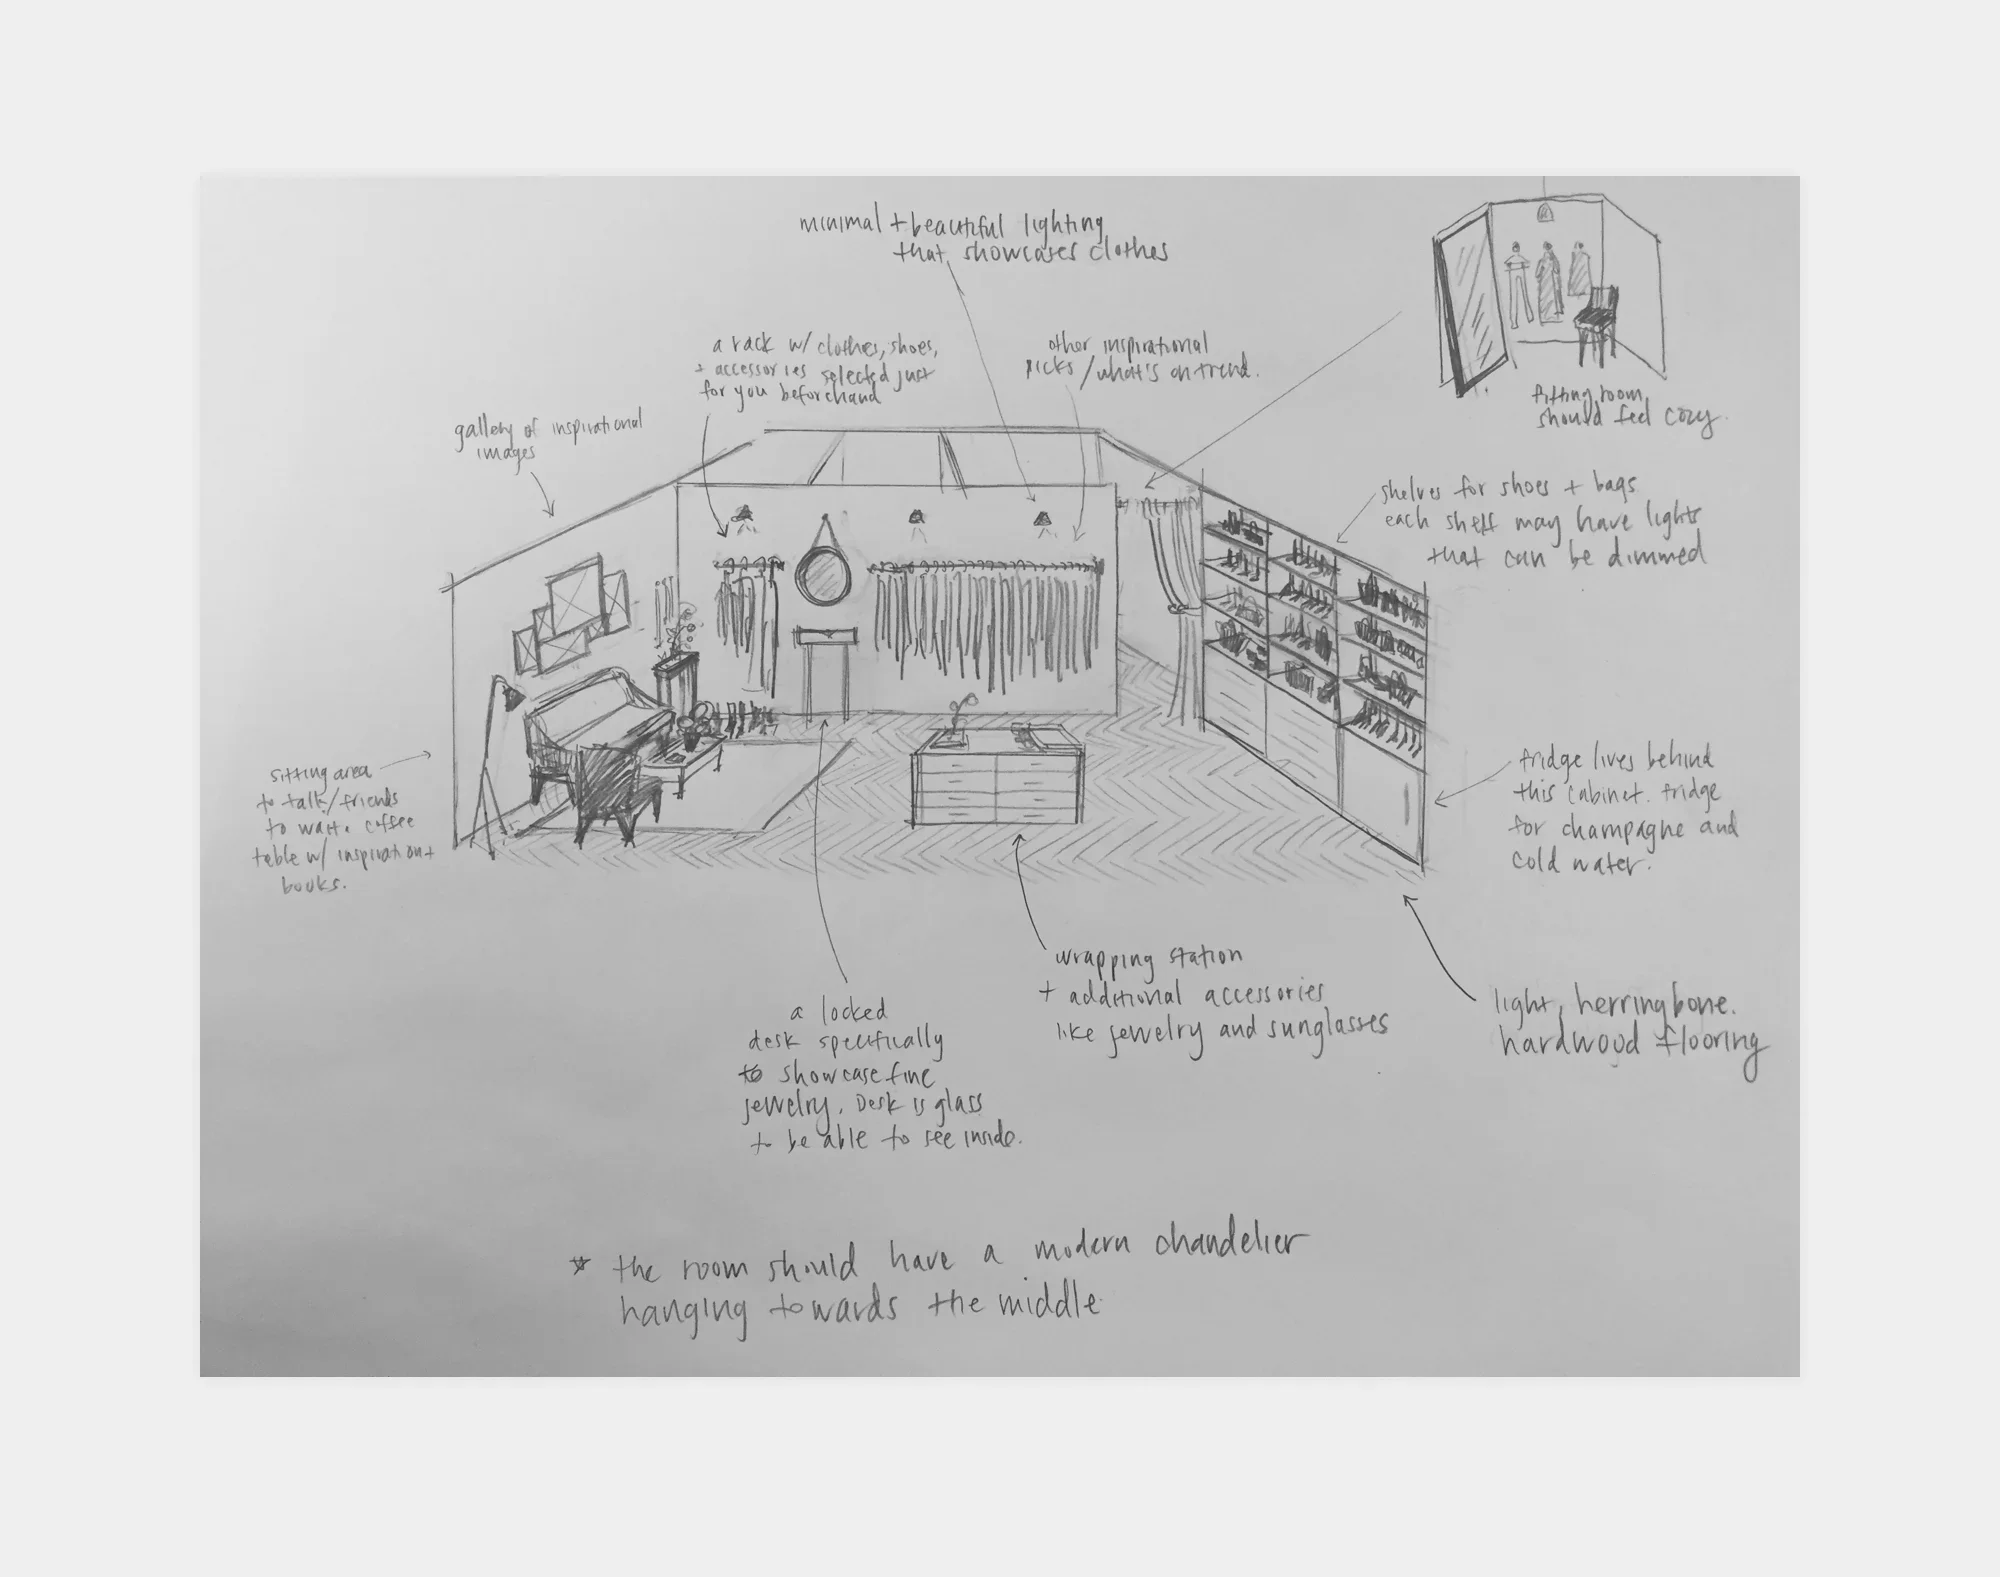 minimal + beautiful lighting
that showcases clothes
a rack w/ clothes, shoes,
+ accessories selected just
for you beforehand
other inspirational
picks / what's on trend.
gallery of inspirational
images
fitting room
should feel cozy.
shelves for shoes + bags
each shelf may have lights
that can be dimmed
sitting area
to talk/friends
to wait. coffee
table w/ inspiration
books.
fridge lives behind
this cabinet. fridge
for champagne and
cold water.
wrapping station
+ additional accessories
like jewelry and sunglasses
a locked
desk specifically
to showcase fine
jewelry. Desk is glass
to be able to see inside.
light, herringbone.
hardwood flooring
* the room should have a modern chandelier
hanging towards the middle